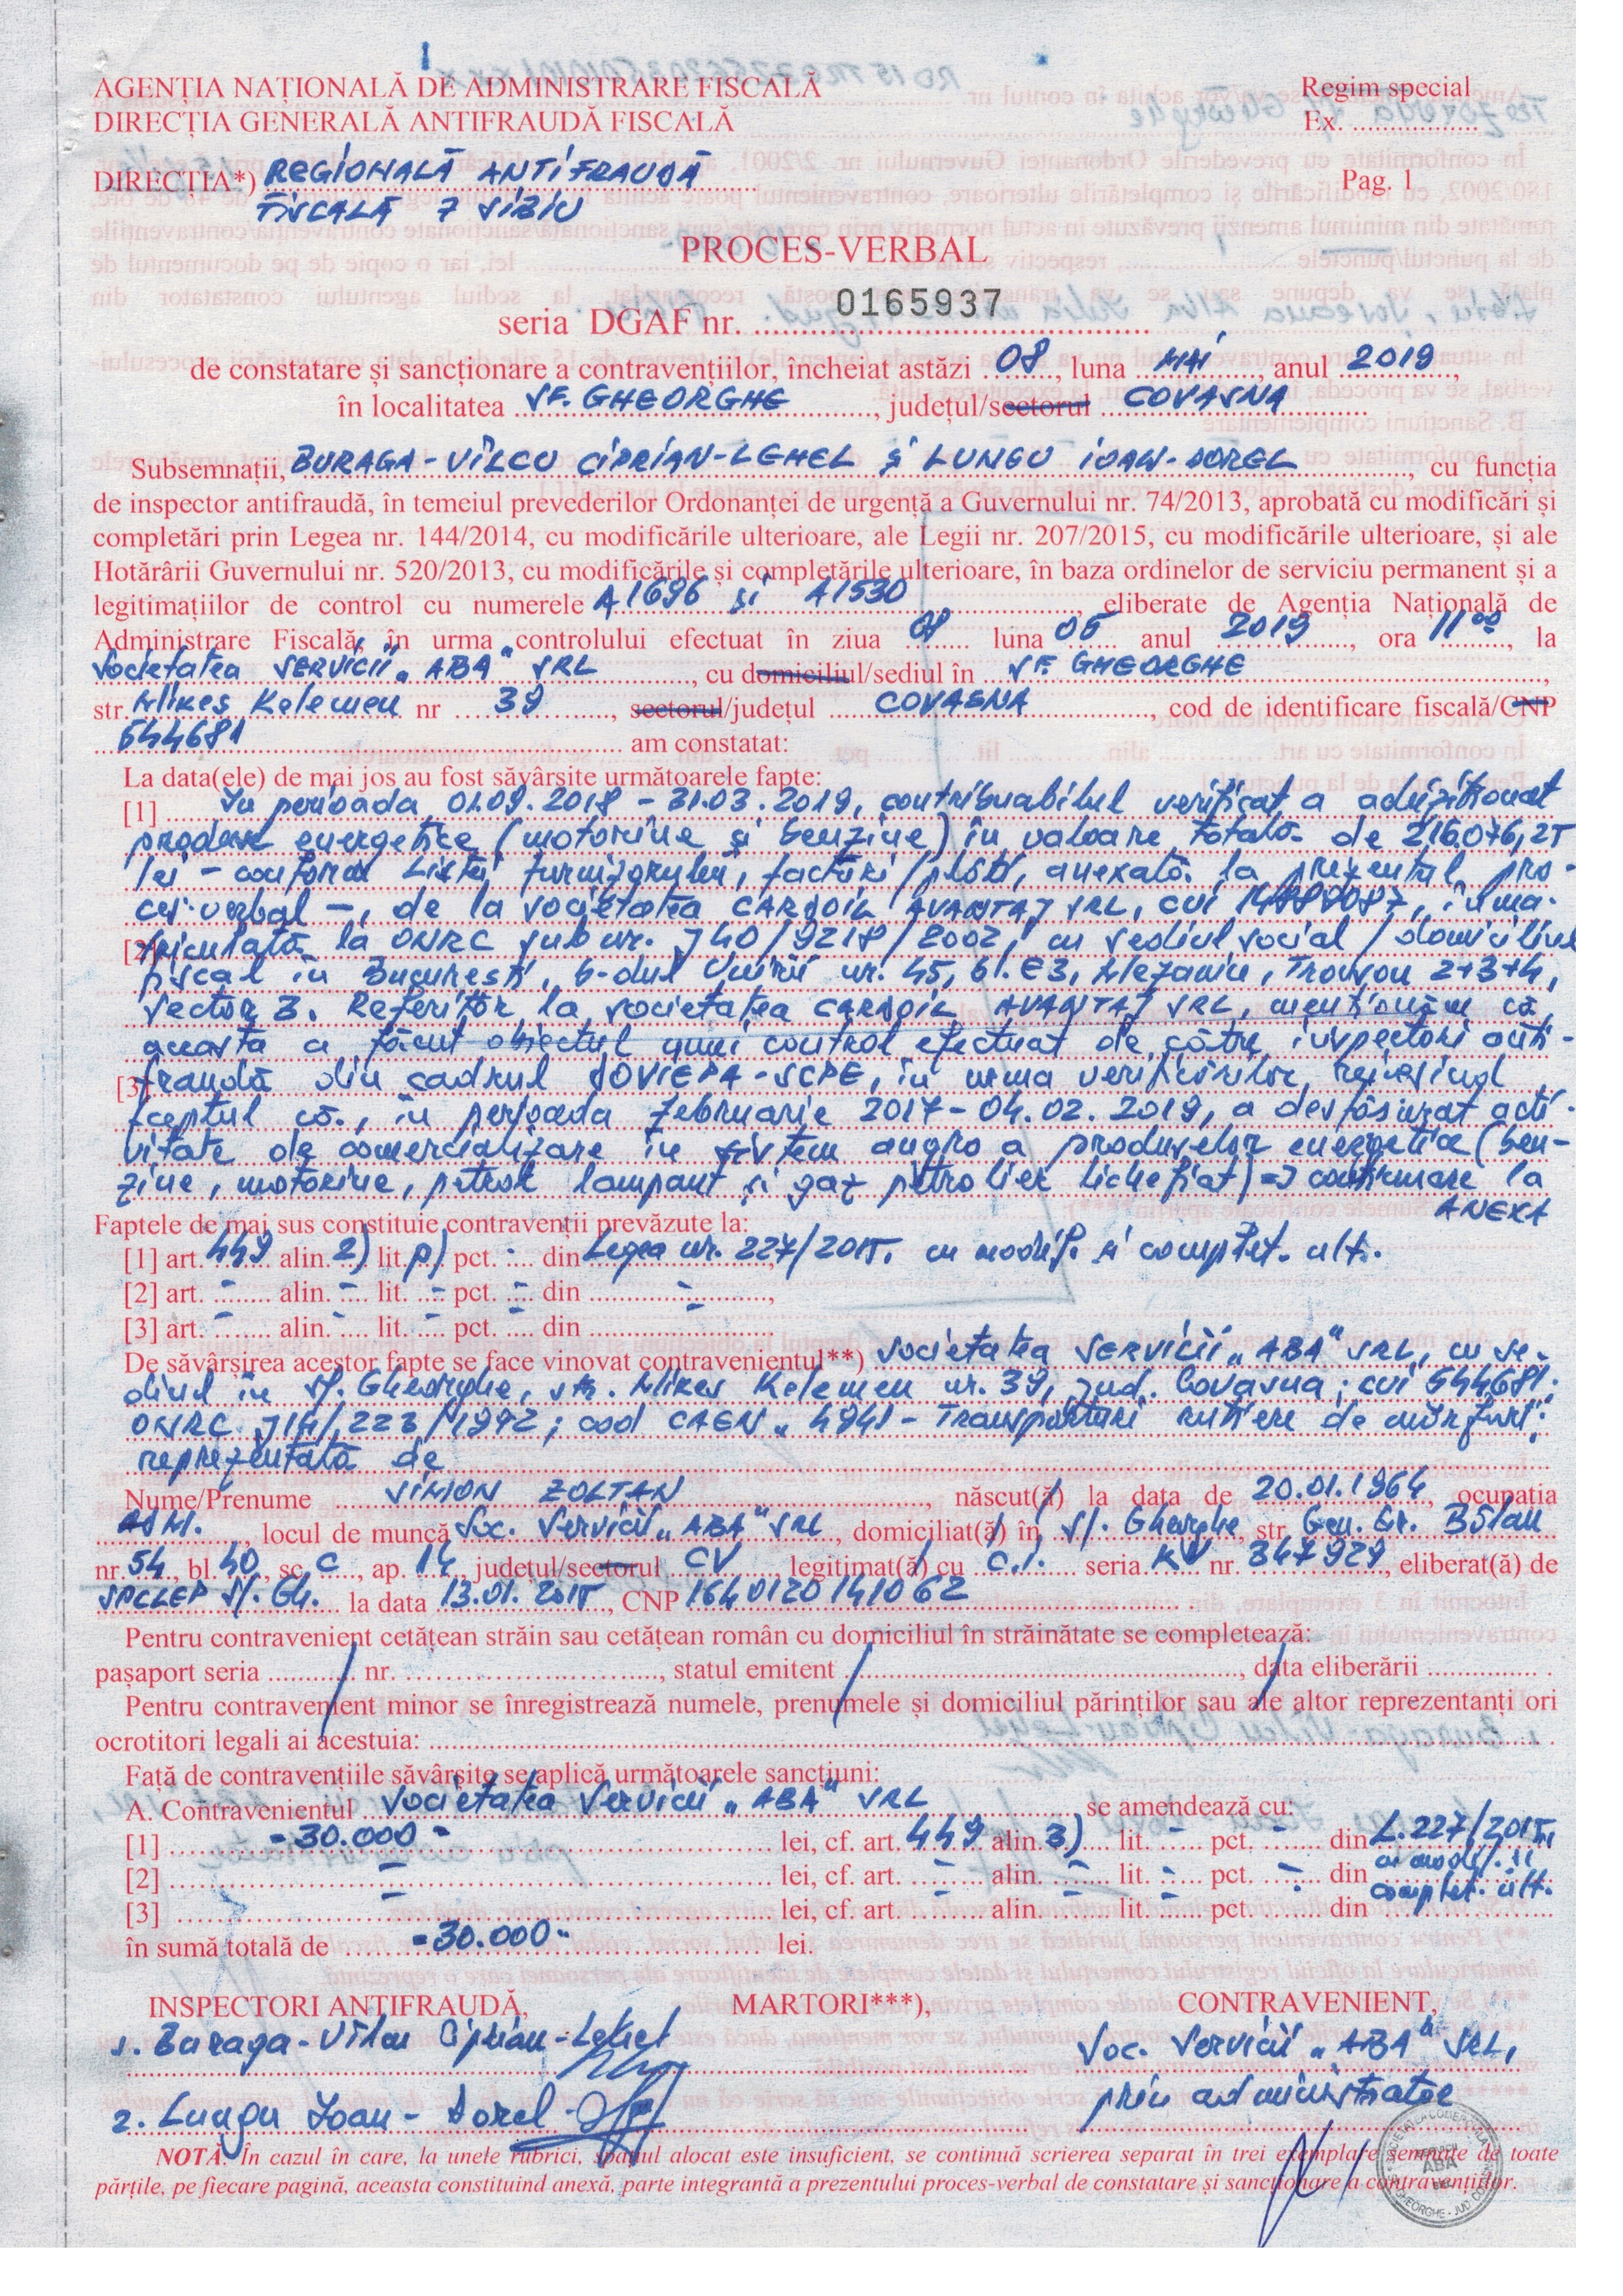 AGENȚIA NAȚIONALĂ DE ADMINISTRARE FISCALĂ
Regim special
DIRECȚIA GENERALĂ ANTIFRAUDĂ FISCALĂ
Ex. ..................
DIRECȚIA*) REGIONALĂ ANTIFRAUDĂ
Pag. 1
FISCALĂ 7 SIBIU
PROCES-VERBAL
seria DGAF nr. 0165937
de constatare și sancționare a contravențiilor, încheiat astăzi 08, luna MAI, anul 2019,
în localitatea SF. GHEORGHE, județul/sectorul COVASNA
Subsemnații, BURAGA-VÎLCU CIPRIAN-LEHEL și LUNGU IOAN-DOREL, cu funcția
de inspector antifraudă, în temeiul prevederilor Ordonanței de urgență a Guvernului nr. 74/2013, aprobată cu modificări și
completări prin Legea nr. 144/2014, cu modificările ulterioare, ale Legii nr. 207/2015, cu modificările ulterioare, și ale
Hotărârii Guvernului nr. 520/2013, cu modificările și completările ulterioare, în baza ordinelor de serviciu permanent și a
legitimațiilor de control cu numerele A1696 și A1530, eliberate de Agenția Națională de
Administrare Fiscală, în urma controlului efectuat în ziua 08 luna 05 anul 2019, ora 11 00, la
Societatea SERVICII „ABA" SRL, cu domiciliul/sediul în SF. GHEORGHE,
str. Mikes Kelemen nr 39, sectorul/județul COVASNA, cod de identificare fiscală/CNP
544681 am constatat:
La data(ele) de mai jos au fost săvârșite următoarele fapte:
[1] În perioada 01.09.2018 - 31.03.2019, contribuabilul verificat a achiziționat
produse energetice (motorine și benzine) în valoare totală de 216.076,25
lei - conform Listei furnizorului, facturi/plăti, anexată la prezentul pro-
ces-verbal -, de la societatea CARDOIL AVANTAJ SRL, CUI
[2] matriculată la ONRC sub nr. J40/9218/2002, cu sediul social/domiciliul
fiscal în București, b-dul Unirii nr. 45, bl. E3, Mezanin, Tronson 2+3+4,
sector 3. Referitor la societatea CARDOIL AVANTAJ SRL, menționăm că
aceasta a făcut obiectul unui control efectuat de către inspectori anti-
[3] fraudă din cadrul DOVIEPA-SCPE, în urma verificărilor reieșind
faptul că, în perioada februarie 2017 - 04.02.2019, a desfășurat acti-
vitate de comercializare în sistem angro a produselor energetice (ben-
zine, motorine, petrol lampant și gaz petrolier lichefiat) => continuare la
ANEXA
Faptele de mai sus constituie contravenții prevăzute la:
[1] art. 449 alin. 2) lit. p) pct. - din Legea nr. 227/2015, cu modif. și complet. ult.
[2] art. - alin. - lit. - pct. - din -,
[3] art. - alin. - lit. - pct. - din
De săvârșirea acestor fapte se face vinovat contravenientul**) Societatea SERVICII „ABA" SRL, cu se-
diul în Sf. Gheorghe, str. Mikes Kelemen nr. 39, jud. Covasna; CUI 544681;
ONRC J14/223/1992; cod CAEN „4941 - Transporturi rutiere de mărfuri";
reprezentată de
Nume/Prenume SIMON ZOLTAN, născut(ă) la data de 20.01.1964, ocupația
ADM., locul de muncă Soc. Servicii „ABA" SRL, domiciliat(ă) în Sf. Gheorghe, str. Gen. Gr. Bălan
nr. 54, bl. 40, sc. C, ap. 14, județul/sectorul CV, legitimat(ă) cu C.I. seria KV nr. 347929, eliberat(ă) de
SPCLEP Sf. Gh. la data 13.01.2015, CNP 1640120141062
Pentru contravenient cetățean străin sau cetățean român cu domiciliul în străinătate se completează:
pașaport seria ............ nr. .........................., statul emitent ........................................, data eliberării ............... .
Pentru contravenient minor se înregistrează numele, prenumele și domiciliul părinților sau ale altor reprezentanți ori
ocrotitori legali ai acestuia: ..........................................
Față de contravențiile săvârșite se aplică următoarele sancțiuni:
A. Contravenientul Societatea Servicii „ABA" SRL se amendează cu:
[1] - 30.000 - lei, cf. art. 449 alin. 3) lit. - pct. - din L. 227/2015,
cu modif. și
[2] - lei, cf. art. - alin. - lit. - pct. - din
complet. ult.
[3] - lei, cf. art. - alin. - lit. - pct. - din
în sumă totală de - 30.000 - lei.
INSPECTORI ANTIFRAUDĂ,
MARTORI***),
CONTRAVENIENT,
1. Buraga-Vîlcu Ciprian-Lehel
Soc. Servicii „ABA" SRL,
prin administrator
2. Lungu Ioan-Dorel
NOTĂ: În cazul în care, la unele rubrici, spațiul alocat este insuficient, se continuă scrierea separat în trei exemplare semnate de toate
părțile, pe fiecare pagină, aceasta constituind anexă, parte integrantă a prezentului proces-verbal de constatare și sancționare a contravențiilor.
SOCIETATEA COMERCIALĂ
SERVICII
ABA
SRL